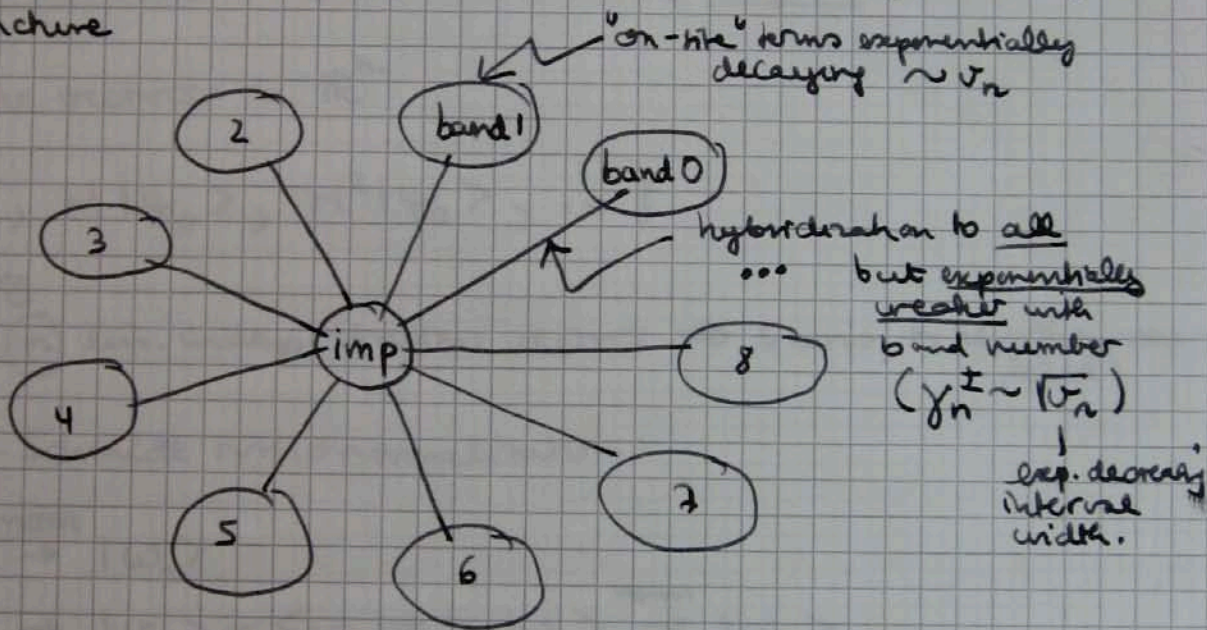 "on-site" terms exponentially
decaying ~ v_n
2
band 1
band 0
3
hybridization to all
... but exponentially
weaker with
band number
(γ_n^± ~ √v_n)
exp. decreasing
interval
width.
imp
8
4
7
5
6